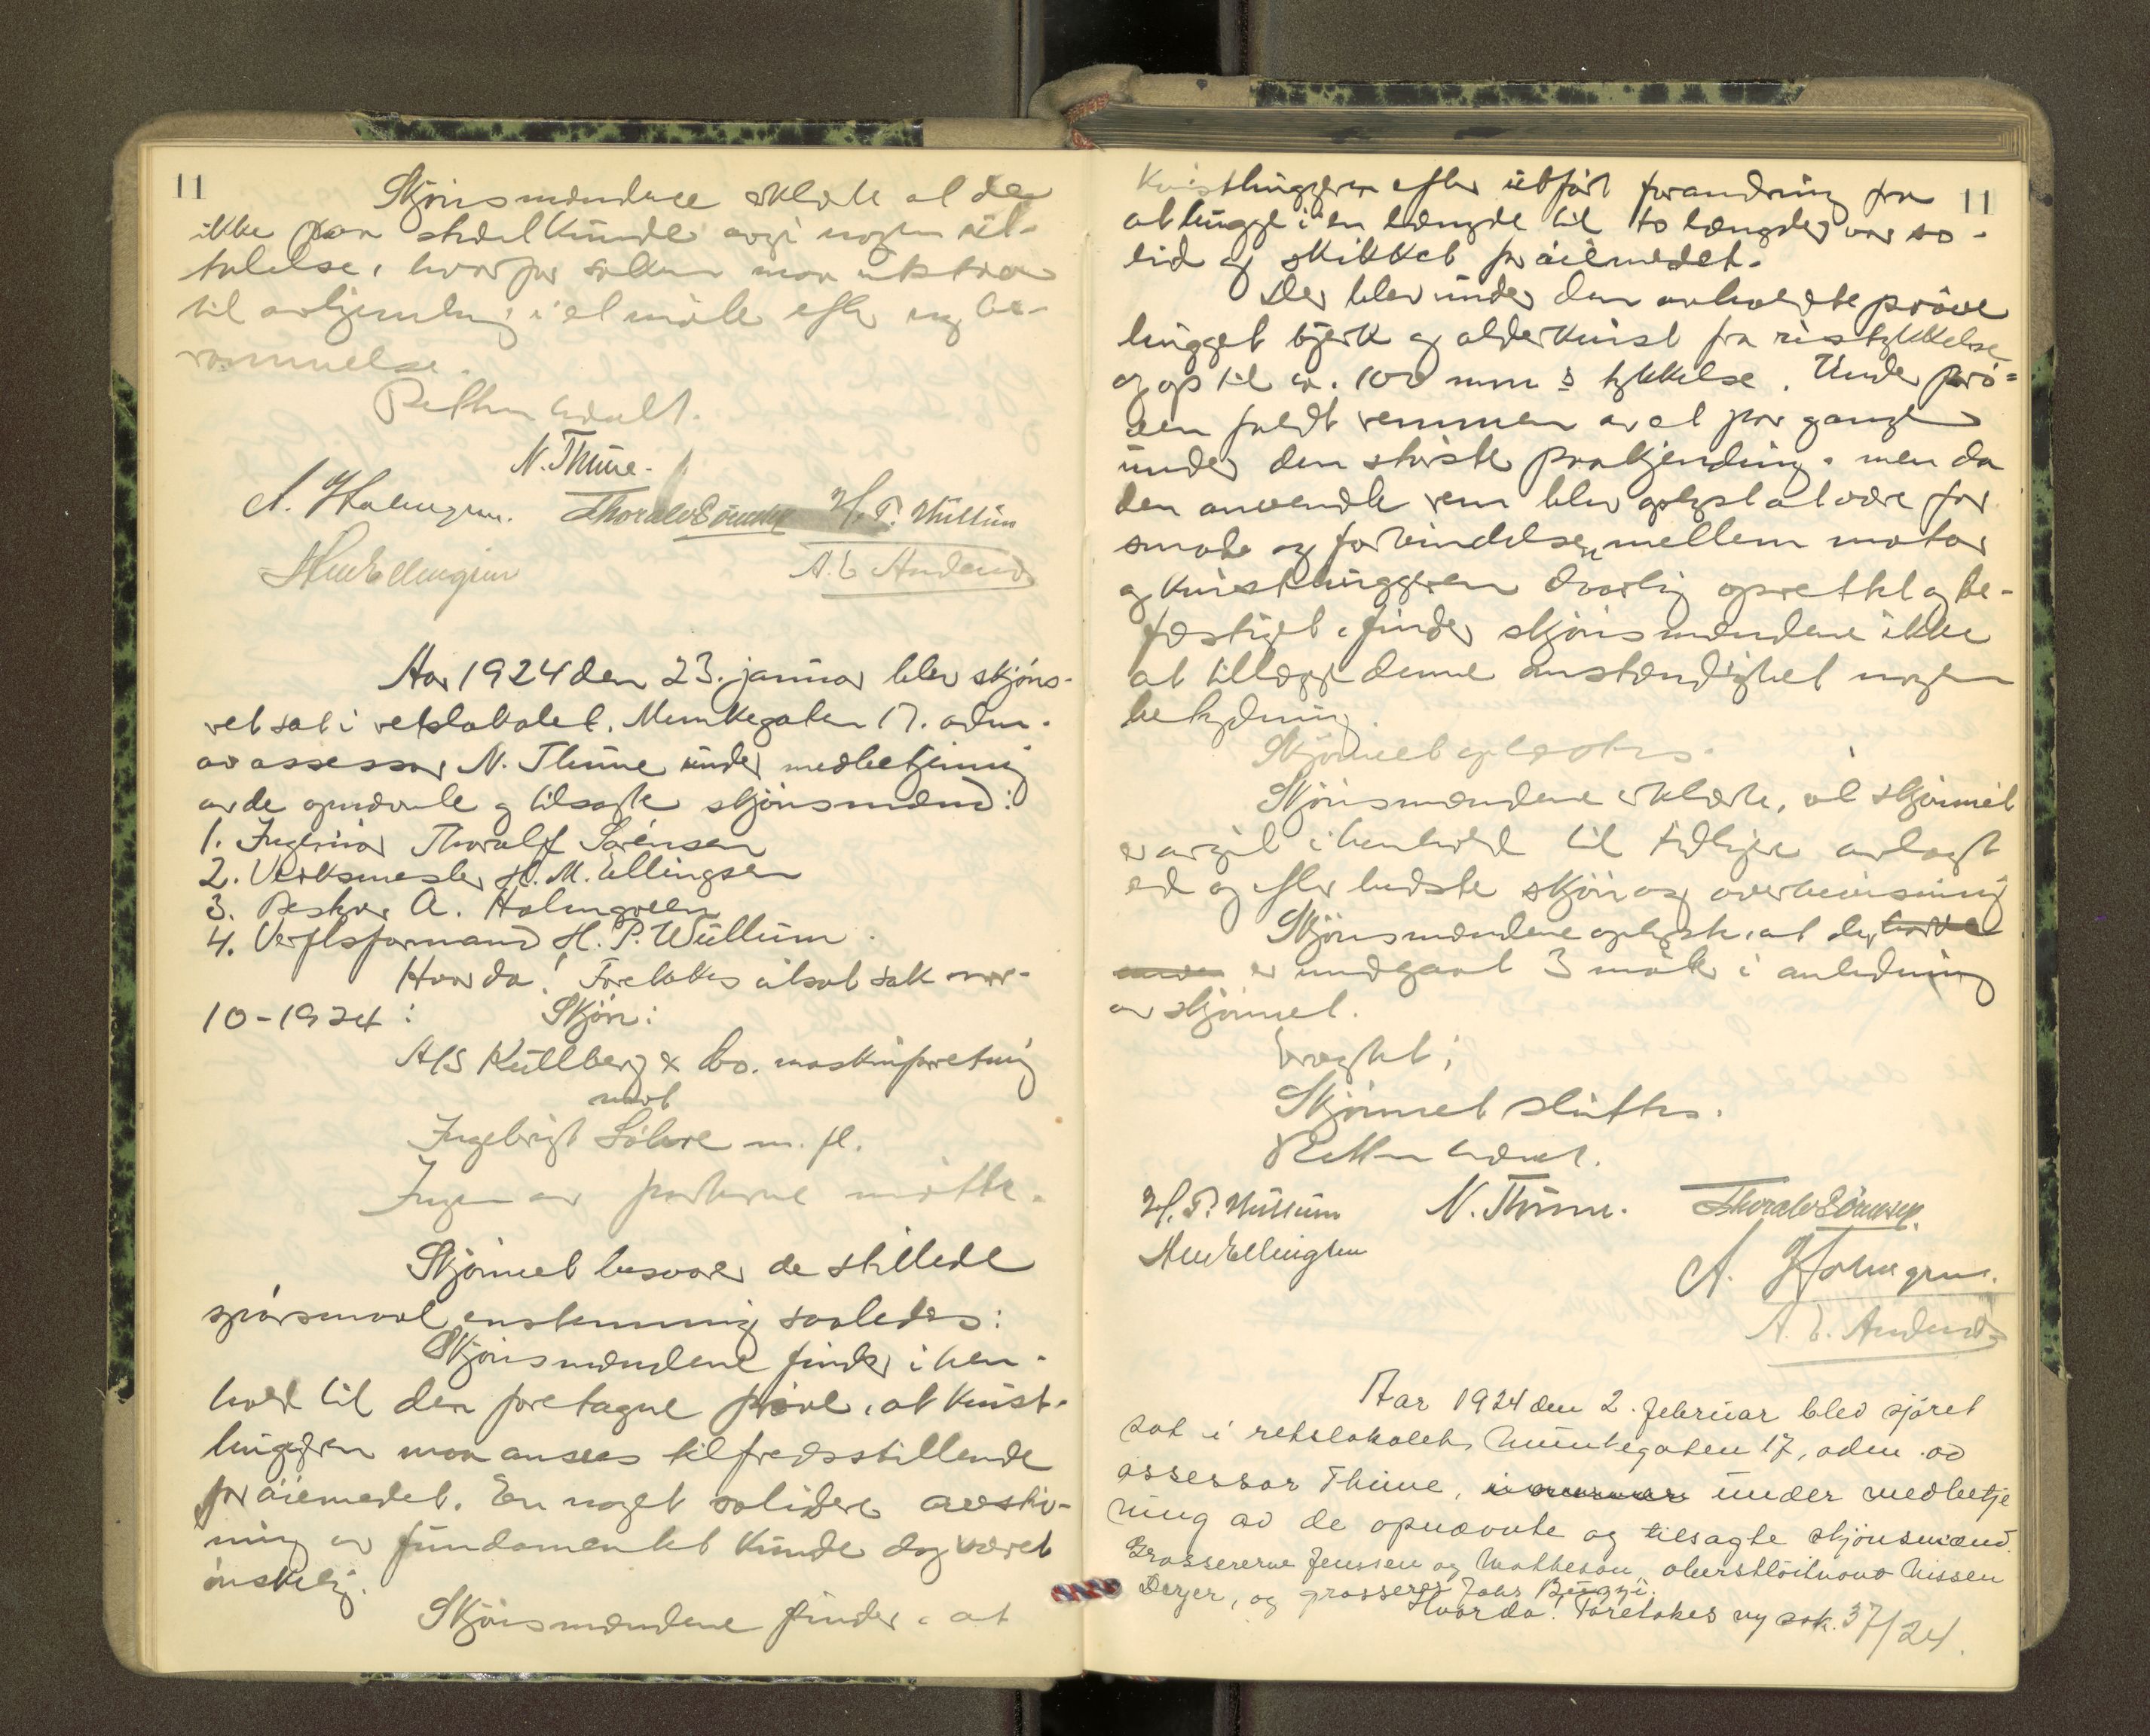 11
Skjønsmændene erklærte at de
ikke paa stedet kunde avgi nogen ut-
talelse, hvorfor saken maa utstaa
til avhjemling i et møte efter ny be-
rammelse.
Retten hævet.
N. Thüne.
A. Holmgren. Thoralv Sörensen H. P. Wüllüm
H M Ellingsen A. E. Andersen
Aar 1924 den 23. januar blev skjøns-
ret sat i retslokalet, Munkegaten 17. adm.
av assessor N. Thüne under medbetjening
av de opnævnte og tilsagte skjønsmænd:
1. Ingeniør Thoralf Sørensen
2. Verksmester H. M. Ellingsen
3. Bestyr A. Holmgreen
4. Verftsformand H. P. Wüllum.
Hvorda! Foretokes utsat sak nr-
10-1924: Skjøn:
A/S Küllberg & Co. maskinforretning
mot
Ingebrigt Løhre m. fl.
Ingen av parterne møtte.
Skjønnet besvarer de stillede
spørsmaal enstemmig saaledes:
Skjønsmændene finder i hen-
hold til den foretagne prøve, at kvist-
huggeren maa ansees tilfredsstillende
for øiemedet. En noget solidere avstiv-
ning av fundamentet kunde dog været
ønskelig.
Skjønsmændene finder, at
11
Kvisthuggeren efter utført forandring fra
at hugge i en længde til to længder var so-
lid og skikket for øiemedet.
Der blev under den avholdte prøve
hugget bjerk og olderkvist fra ristykkelse
og op til ca. 100 mm s tykkelse. Under prø-
ven faldt remmen av et par gange
under den største paakjending, men da
den anvendte rem blev oplyst at være for
smal og forbindelsen mellem motor
og kvisthuggeren daarlig oprettet og be-
fæstiget, finder skjønsmændene ikke
at tillægge denne omstændighet nogen
betydning.
Skjønnet oplæstes.
Skjønsmændene erklærte, at skjønnet
er avgit i henhold til tidligere avlagt
ed og efter bedste skjøn og overbevisning
Skjønsmændene oplyste, at der
er medgaat 3 møter i anledning
av skjønnet.
Vragtet;
Skjønnet sluttes.
Retten hævet.
H. P. Wüllüm N. Thüne. Thoralv Sörensen.
H M Ellingsen
A. Holmgren.
A. E. Andersen
Aar 1924 den 2. februar blev sjøret
sat i retslokalet Munkegaten 17, adm. av
assessor Thüne, under medbetje
ning av de opnævnte og tilsagte skjønsmænd.
Grossererne Jenssen og Matheson, oberstløitnant Nissen
Derjer, og grosserer Johs Bügge.
Hvorda! Foretokes ny sak. 37/24.